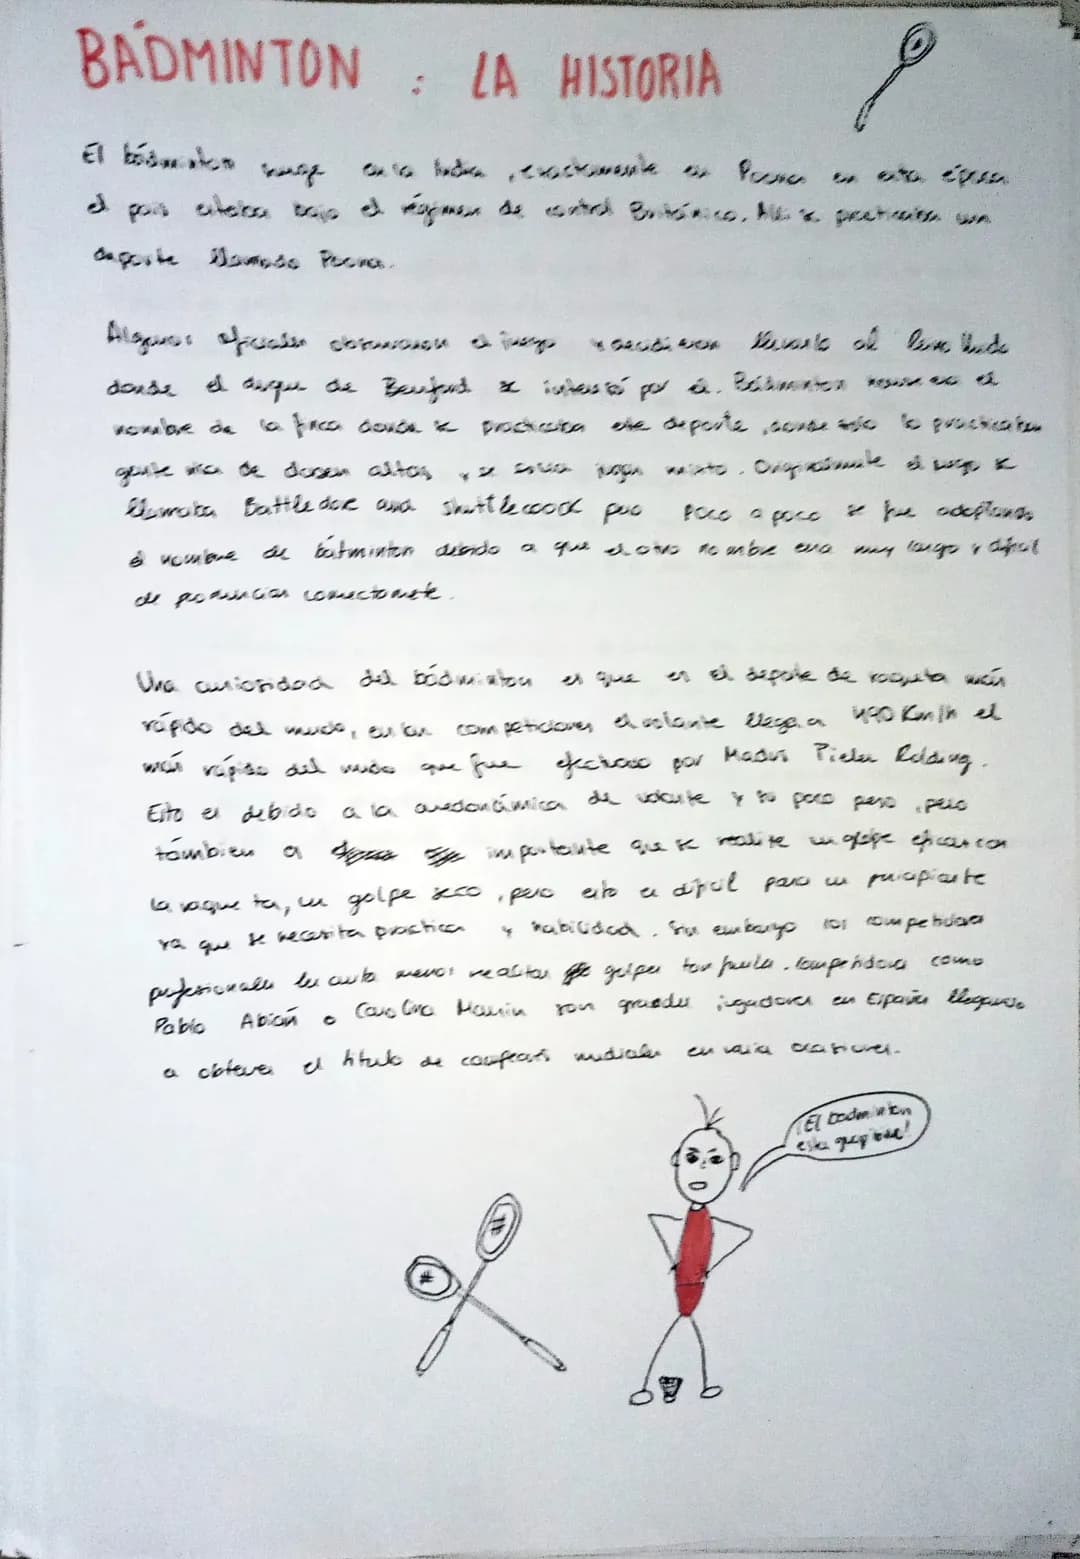 BÁDMINTON : LA HISTORIA
El bádminton surge en la India, exactamente en Poona en esta época
el pais estaba bajo el régimen de control Británico. Alli se practicaba un
deporte llamado Poona.
Algunos oficiales observaron el juego y decidieron llevarlo al
donde el duque de Beauford se interesó por él. Bádminton house era el
nombre de la finca donde se practicaba este deporte, donde solo lo practicaban
gente rica de clases altas, y se solia jugar mixto. Originalmente el juego se
llamaba Battledore and shuttlecock pero poco a poco se fue adoptando
el nombre de bátminton debido a que el otro nombre era muy largo y dificil
de pronunciar correctamente.
Una curiosidad del bádminton es que es el deporte de raqueta más
rápido del mundo, en las competiciones el volante llega a 490 Km/h el
más rápido del mundo que fue efectuado por Mads Pieler Kolding.
Esto es debido a la aredonámica de volante y su poco peso, pero
támbien es importante que se realize un golpe eficaz con
la raqueta, un golpe seco, pero esto es dificil para un principiante
ya que se necesita practica y habilidad. Sin embargo los competidores
profesionales les cuesta menos realizar golpes tan fuertes. Competidores como
Pablo Abián o Carolina Marin son grandes jugadores en España llegando
a obtener el titulo de campeones mundiales en varias ocasiones.
¡El badminton
esta guapisimo!